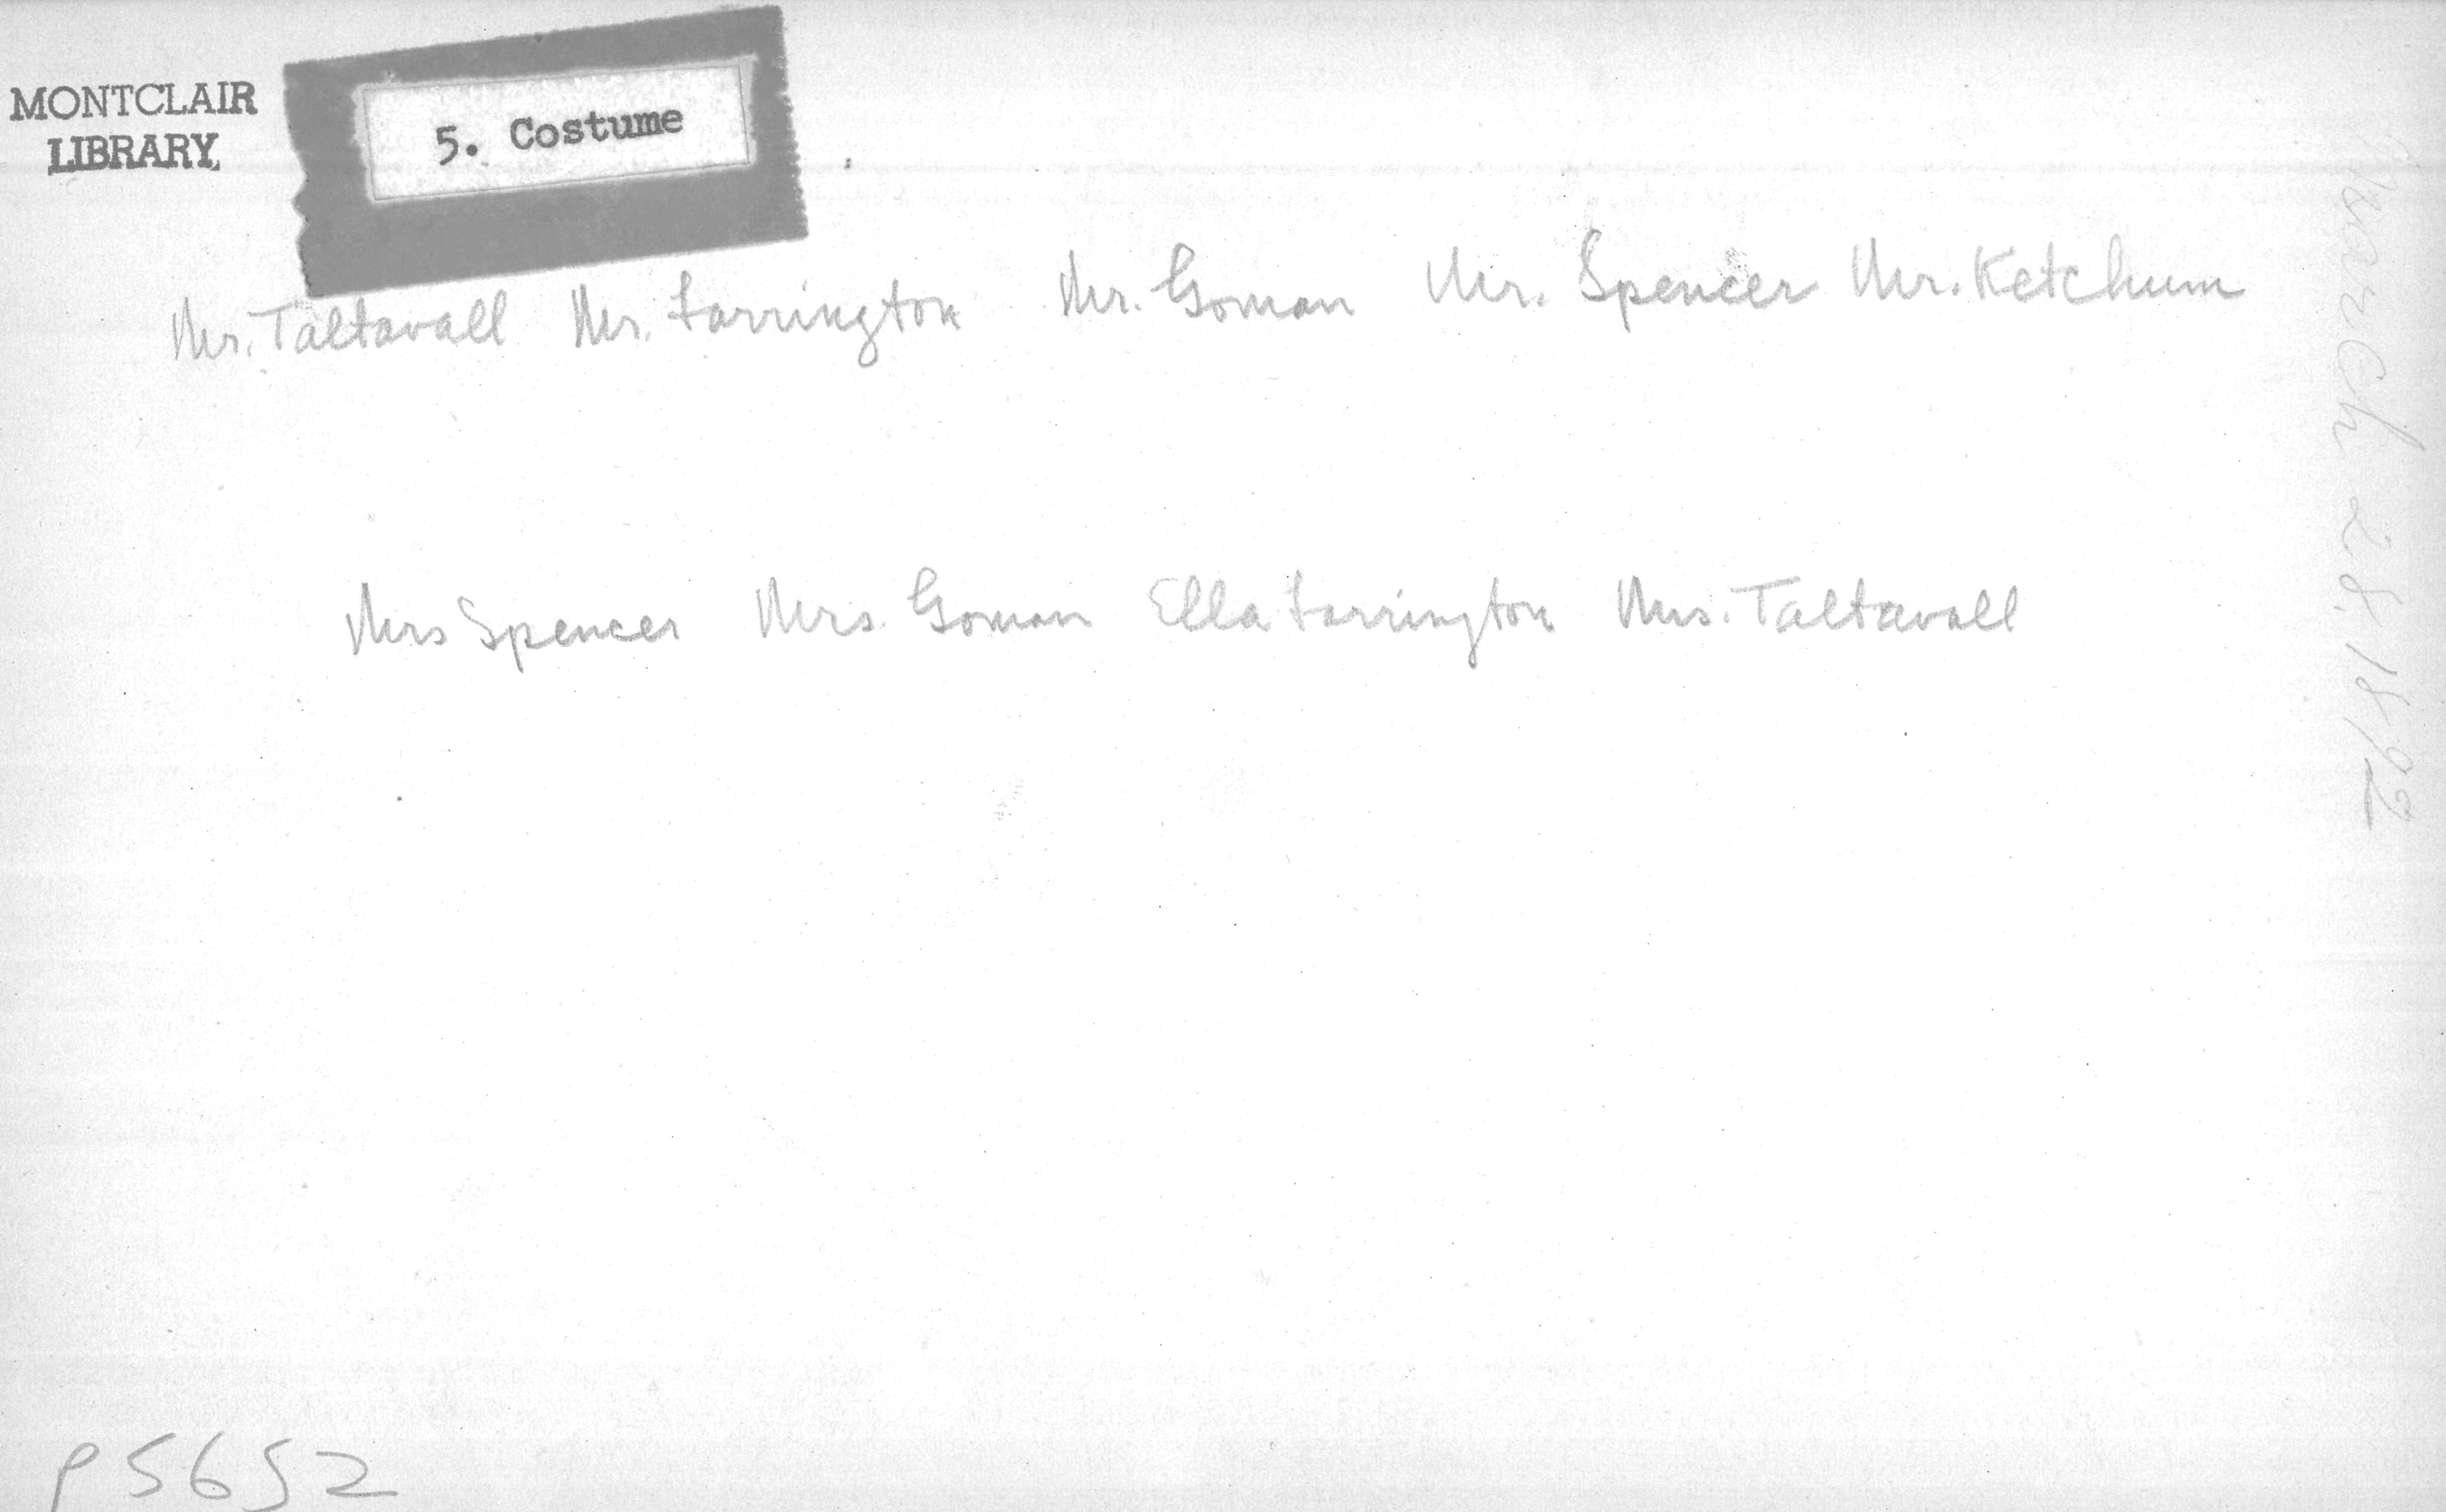 MONTCLAIR
LIBRARY
5. Costume
Mr. Taltavall Mr. Farrington Mr. Goman Mr. Spencer Mr. Ketchum
Mrs Spencer Mrs. Goman Ella Farrington Mrs. Taltavall
March 28. 1892
P5652